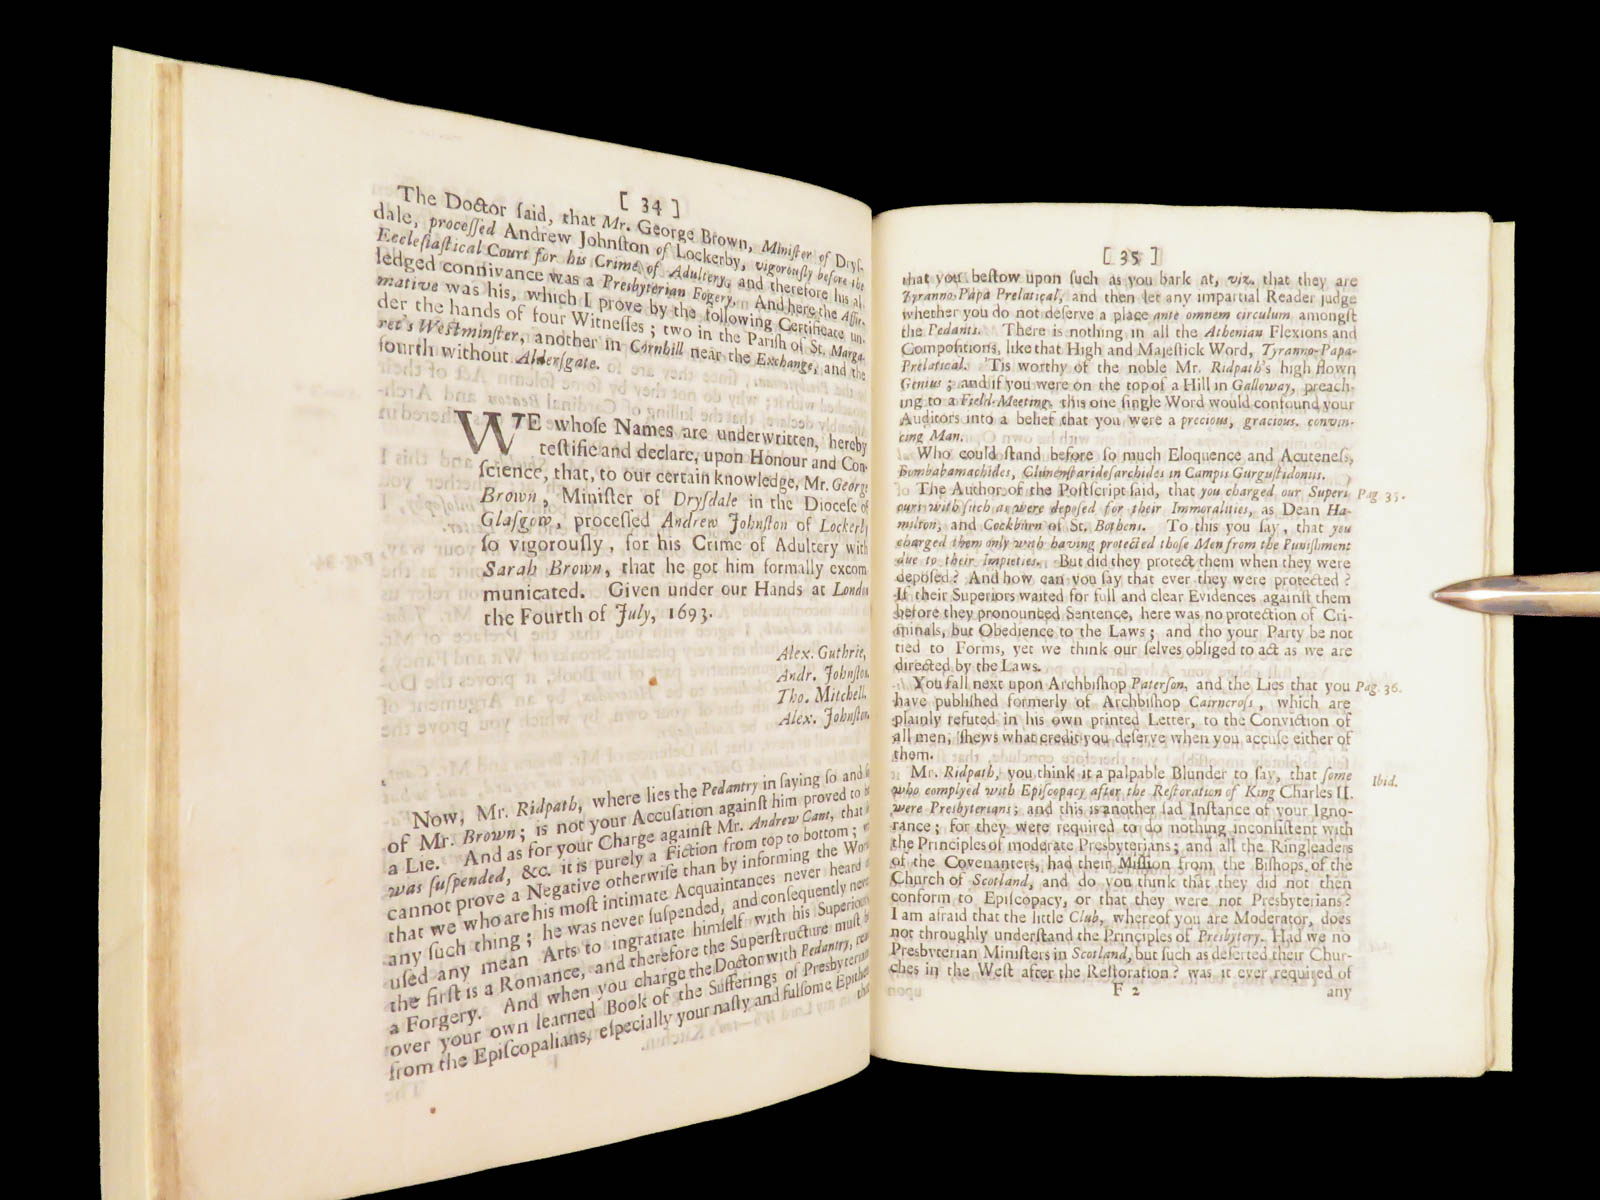 [ 34 ]
The Doctor ſaid, that Mr. George Brown, Miniſter of Dryſ-
dale, proceſſed Andrew Johnſton of Lockerby, vigorouſly before the
Eccleſiaſtical Court for his Crime of Adultery, and therefore his al-
ledged connivance was a Presbyterian Fogery. And here the Affir-
mative was his, which I prove by the following Certificate un-
der the hands of four Witneſſes; two in the Pariſh of St. Marga-
ret's Weſtminſter, another in Cornhill near the Exchange, and the
fourth without Alderſgate.
WE whoſe Names are underwritten, hereby
teſtifie and declare, upon Honour and Con-
ſcience, that, to our certain knowledge, Mr. George
Brown, Miniſter of Dryſdale in the Dioceſe of
Glaſgow, proceſſed Andrew Johnſton of Lockerby
ſo vigorouſly, for his Crime of Adultery with
Sarah Brown, that he got him formally excom
municated. Given under our Hands at London
the Fourth of July, 1693.
Alex. Guthrie,
Andr. Johnſton,
Tho. Mitchell,
Alex. Johnſton.
Now, Mr. Ridpath, where lies the Pedantry in ſaying ſo and ſo
of Mr. Brown; is not your Accuſation againſt him proved to be
a Lie. And as for your Charge againſt Mr. Andrew Cant, that
was ſuſpended, &c. it is purely a Fiction from top to bottom;
cannot prove a Negative otherwiſe than by informing the Wor
that we who are his moſt intimate Acquaintances never heard
any ſuch thing; he was never ſuſpended, and conſequently never
uſed any mean Arts to ingratiate himſelf with his Superiours
the firſt is a Romance, and therefore the Superſtructure muſt
a Forgery. And when you charge the Doctor with Pedantry,
over your own learned Book of the Sufferings of Presbyterian
from the Epiſcopalians, eſpecially your naſty and fulſome Epithets
that
[ 35 ]
that you beſtow upon ſuch as you bark at, viz. that they are
Tyranno-Papa Prelatical, and then let any impartial Reader judge
whether you do not deſerve a place ante omnem circulum amongſt
the Pedants. There is nothing in all the Athenian Flexions and
Compoſitions, like that High and Majeſtick Word, Tyranno-Papa-
Prelatical. 'Tis worthy of the noble Mr. Ridpath's high flown
Genius; and if you were on the top of a Hill in Galloway, preach-
ing to a Field-Meeting, this one ſingle Word would confound your
Auditors into a belief that you were a precious, gracious, convin-
cing Man.
Who could ſtand before ſo much Eloquence and Acuteneſs,
Bombabamachides, Cluninſtarideſarchides in Campis Gurguſtidonus.
The Author of the Poſtſcript ſaid, that you charged our Superi Pag. 35.
ours with ſuch as were depoſed for their Immoralities, as Dean Ha-
milton, and Cockburn of St. Bothens. To this you ſay, that you
charged them only with having protected thoſe Men from the Puniſhment
due to their Impieties. But did they protect them when they were
depoſed? And how can you ſay that ever they were protected?
If their Superiors waited for full and clear Evidences againſt them
before they pronounced Sentence, here was no protection of Cri-
minals, but Obedience to the Laws; and tho your Party be not
tied to Forms, yet we think our ſelves obliged to act as we are
directed by the Laws.
You fall next upon Archbiſhop Paterſon, and the Lies that you Pag. 36.
have publiſhed formerly of Archbiſhop Cairncroſs, which are
plainly refuted in his own printed Letter, to the Conviction of
all men, ſhews what credit you deſerve when you accuſe either of
them.
Mr. Ridpath, you think it a palpable Blunder to ſay, that ſome Ibid.
who complyed with Epiſcopacy after the Reſtoration of King Charles II.
were Presbyterians; and this is another ſad Inſtance of your Igno-
rance; for they were required to do nothing inconſiſtent with
the Principles of moderate Presbyterians; and all the Ringleaders
of the Covenanters, had their Miſſion from the Biſhops of the
Church of Scotland, and do you think that they did not then
conform to Epiſcopacy, or that they were not Presbyterians?
I am afraid that the little Club, whereof you are Moderator, does
not throughly underſtand the Principles of Presbytery. Had we no
Presbyterian Miniſters in Scotland, but ſuch as deſerted their Chur-
ches in the Weſt after the Reſtoration? was it ever required of
F 2 any